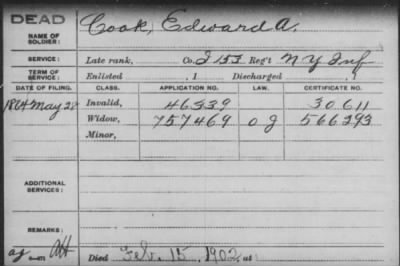 DEAD
NAME OF SOLDIER: Cook, Edward A.
SERVICE: Late rank, Co. I 153 Reg't N Y Inf
TERM OF SERVICE: Enlisted , 1 Discharged , 1
DATE OF FILING. CLASS. APPLICATION NO. LAW. CERTIFICATE NO.
1864 May 28 Invalid, 46339 30611
Widow, 757469 O G 566293
Minor,
ADDITIONAL SERVICES:
REMARKS:
Died Feb. 15, 1902, at